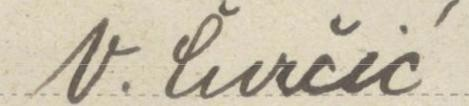 V. Ćurčić